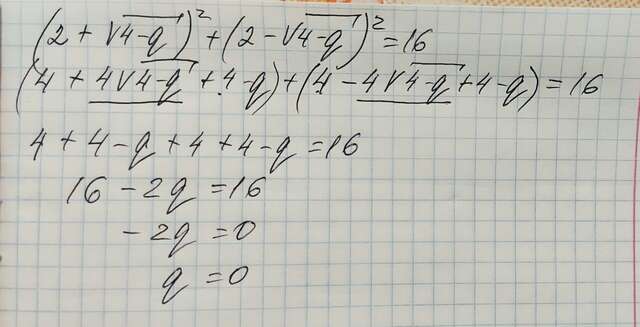 (2 + √4-q)² + (2 - √4-q)² = 16
(4 + 4√4-q + 4-q) + (4 - 4√4-q + 4-q) = 16
4 + 4 - q + 4 + 4 - q = 16
16 - 2q = 16
- 2q = 0
q = 0